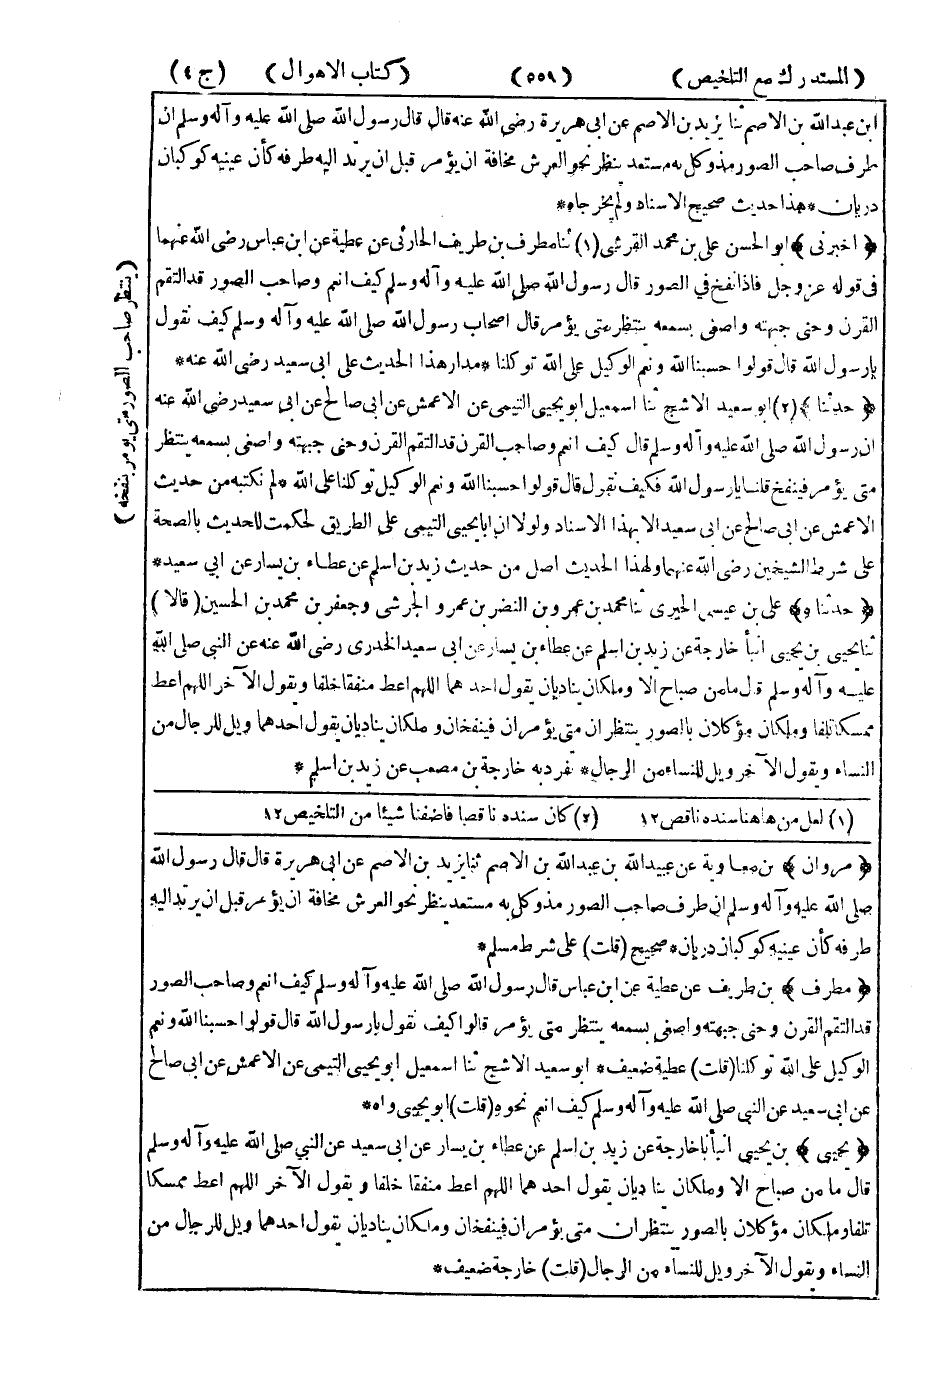 (المستدرك مع التلخيص) (٥٥٩) (كتاب الاهوال) (ج ٤)
ابن عبدالله بن الاصم ثنا يزيد بن الاصم عن ابى هريرة رضى الله عنه قال قال رسول الله صلى الله عليه وآله وسلم ان
طرف صاحب الصور مذ وكل به مستعد ينظر نحو العرش مخافة ان يؤمر قبل ان يرتد اليه طرفه كأن عينيه كوكبان
دريان * هذا حديث صحيح الاسناد ولم يخرجاه *
﴿ اخبرنى ﴾ ابو الحسن على بن محمد القرشى (١) ثنا مطرف بن طريف الحارثى عن عطية عن ابن عباس رضى الله عنهما
فى قوله عز وجل فاذا نفخ فى الصور قال رسول الله صلى الله عليه وآله وسلم كيف انعم وصاحب الصور قد التقم
القرن وحنى جبهته واصغى بسمعه ينتظر متى يؤمر قال اصحاب رسول الله صلى الله عليه وآله وسلم كيف نقول
يا رسول الله قال قولوا حسبنا الله ونعم الوكيل على الله توكلنا * مدار هذا الحديث على ابى سعيد رضى الله عنه *
﴿ حدثنا ﴾ (٢) ابو سعيد الاشج ثنا اسمعيل ابو يحيى التيمى عن الاعمش عن ابى صالح عن ابى سعيد رضى الله عنه
ان رسول الله صلى الله عليه وآله وسلم قال كيف انعم وصاحب القرن قد التقم القرن وحنى جبهته واصغى بسمعه ينتظر
متى يؤمر فينفخ قلنا يا رسول الله فكيف نقول قال قولوا حسبنا الله ونعم الوكيل توكلنا على الله * لم نكتبه من حديث
الاعمش عن ابى صالح عن ابى سعيد الا بهذا الاسناد ولولا ان ابا يحيى التيمى على الطريق لحكمت للحديث بالصحة
على شرط الشيخين رضى الله عنهما ولهذا الحديث اصل من حديث زيد بن اسلم عن عطاء بن يسار عن ابى سعيد *
﴿ حدثناه ﴾ على بن عيسى الحيرى ثنا محمد بن عمرو بن النضر بن عمرو الجرشى وجعفر بن محمد بن الحسين (قالا)
ثنا يحيى بن يحيى انبأ خارجة عن زيد بن اسلم عن عطاء بن يسار عن ابى سعيد الخدرى رضى الله عنه عن النبى صلى الله
عليه وآله وسلم قال ما من صباح الا وملكان يناديان يقول احدهما اللهم اعط منفقا خلفا ويقول الآخر اللهم اعط
ممسكا تلفا وملكان مؤكلان بالصور ينتظران متى يؤمران فينفخان وملكان يناديان يقول احدهما ويل للرجال من
النساء ويقول الآخر ويل للنساء من الرجال * تفرد به خارجة بن مصعب عن زيد بن اسلم *
(١) لعل من هاهنا سنده ناقص ١٢ (٢) كان سنده ناقصا فاضفنا شيئا من التلخيص ١٢
﴿ مروان ﴾ بن معاوية عن عبيد الله بن عبد الله بن الاصم ثنا يزيد بن الاصم عن ابى هريرة قال قال رسول الله
صلى الله عليه وآله وسلم ان طرف صاحب الصور مذ وكل به مستعد ينظر نحو العرش مخافة ان يؤمر قبل ان يرتد اليه
طرفه كأن عينيه كوكبان دريان * صحيح (قلت) على شرط مسلم *
﴿ مطرف ﴾ بن طريف عن عطية عن ابن عباس قال رسول الله صلى الله عليه وآله وسلم كيف انعم وصاحب الصور
قد التقم القرن وحنى جبهته واصغى بسمعه ينتظر متى يؤمر قالوا كيف نقول يا رسول الله قال قولوا حسبنا الله ونعم
الوكيل على الله توكلنا (قلت) عطية ضعيف * ابو سعيد الاشج ثنا اسمعيل ابو يحيى التيمى عن الاعمش عن ابى صالح
عن ابى سعيد عن النبى صلى الله عليه وآله وسلم كيف انعم نحوه (قلت) ابو يحيى واه *
﴿ يحيى ﴾ بن يحيى انبأنا خارجة عن زيد بن اسلم عن عطاء بن يسار عن ابى سعيد عن النبى صلى الله عليه وآله وسلم
قال ما من صباح الا وملكان يناديان يقول احدهما اللهم اعط منفقا خلفا ويقول الآخر اللهم اعط ممسكا
تلفا وملكان مؤكلان بالصور ينتظران متى يؤمران فينفخان وملكان يناديان يقول احدهما ويل للرجال من
النساء ويقول الآخر ويل للنساء من الرجال (قلت) خارجة ضعيف *
(ينتظر صاحب الصور متى يومر بنفخه)